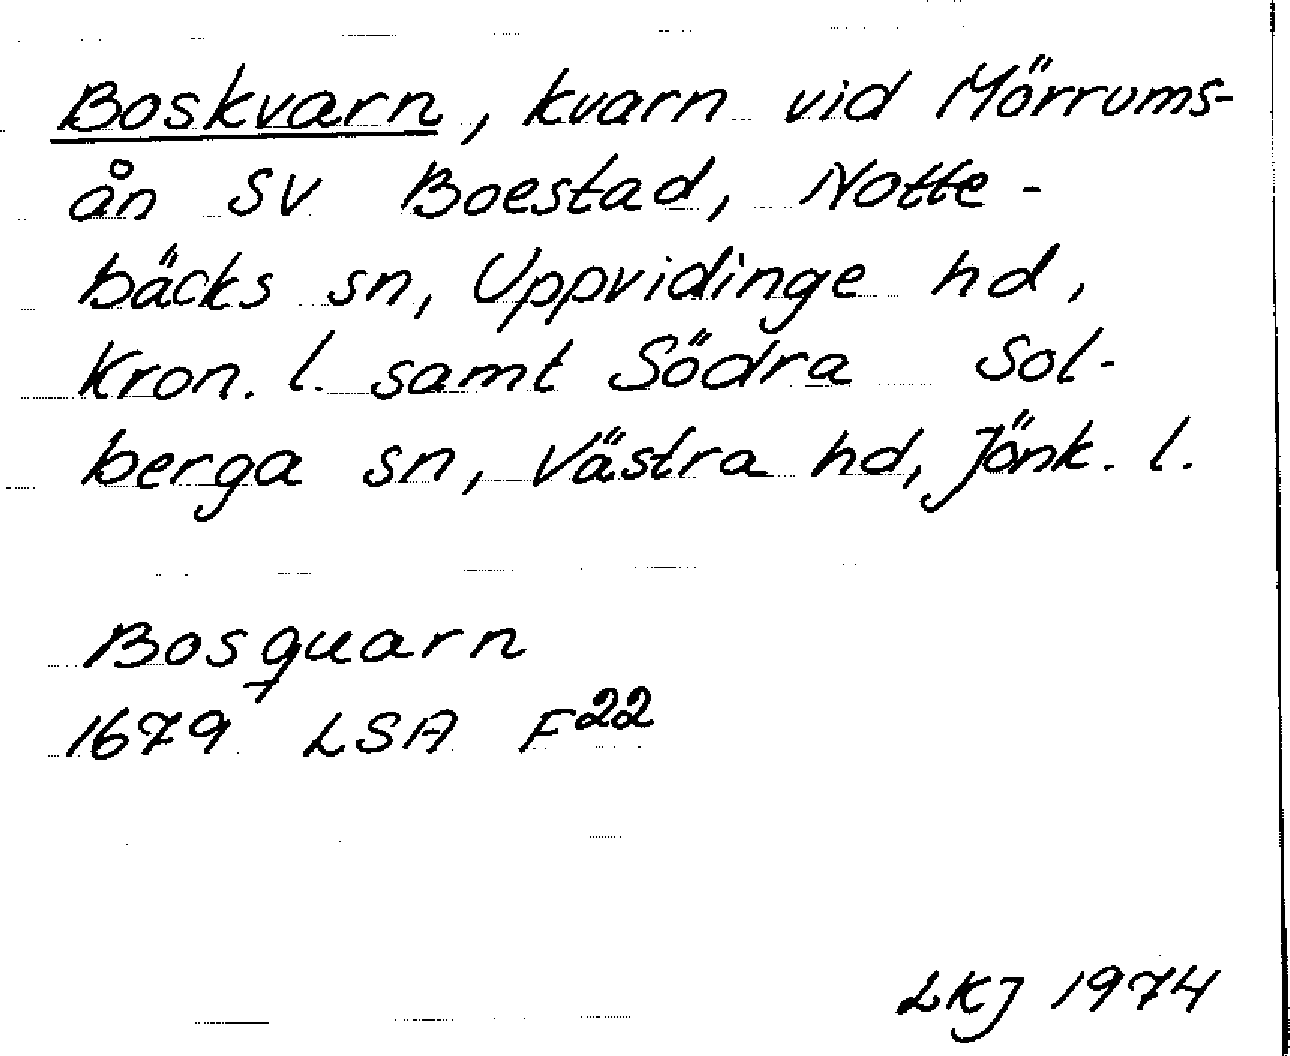 Boskvarn, kvarn vid Mörrums-
ån SV Boestad, Notte-
bäcks sn, Uppvidinge hd,
Kron. l. samt Södra Sol-
berga sn, Västra hd, Jönk. l.
Bosquarn
1679 LSA F22
LKJ 1974